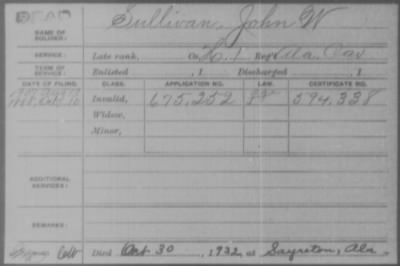 DEAD
NAME OF SOLDIER: Sullivan, John W
SERVICE: Late rank, Co. H. 1 Reg't Ala. Cav
TERM OF SERVICE: Enlisted , 1 Discharged , 1
DATE OF FILING. CLASS. APPLICATION NO. LAW. CERTIFICATE NO.
Invalid, 675,252 594,338
Widow,
Minor,
ADDITIONAL SERVICES:
REMARKS:
Died Oct 30 , 1932, at Sayreton, Ala